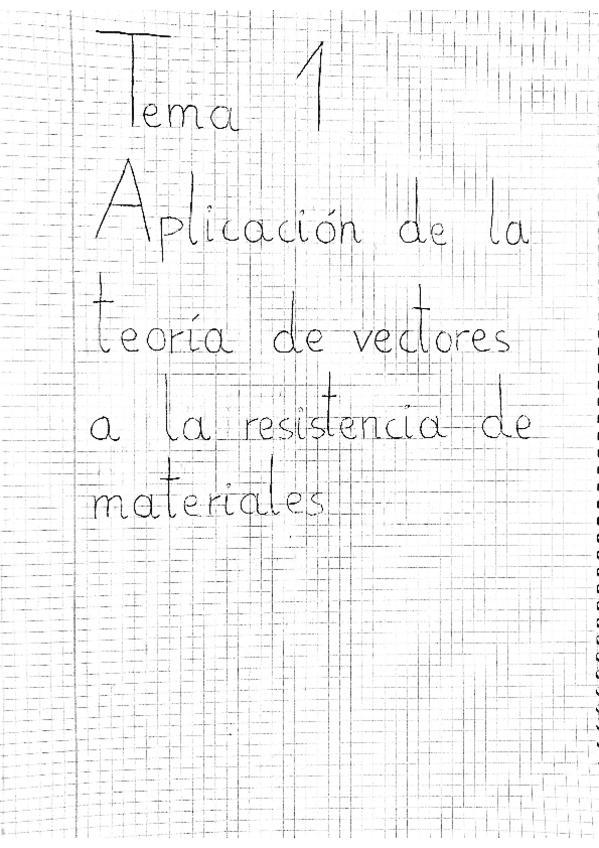 Tema 1
Aplicación de la
teoría de vectores
a la resistencia de
materiales